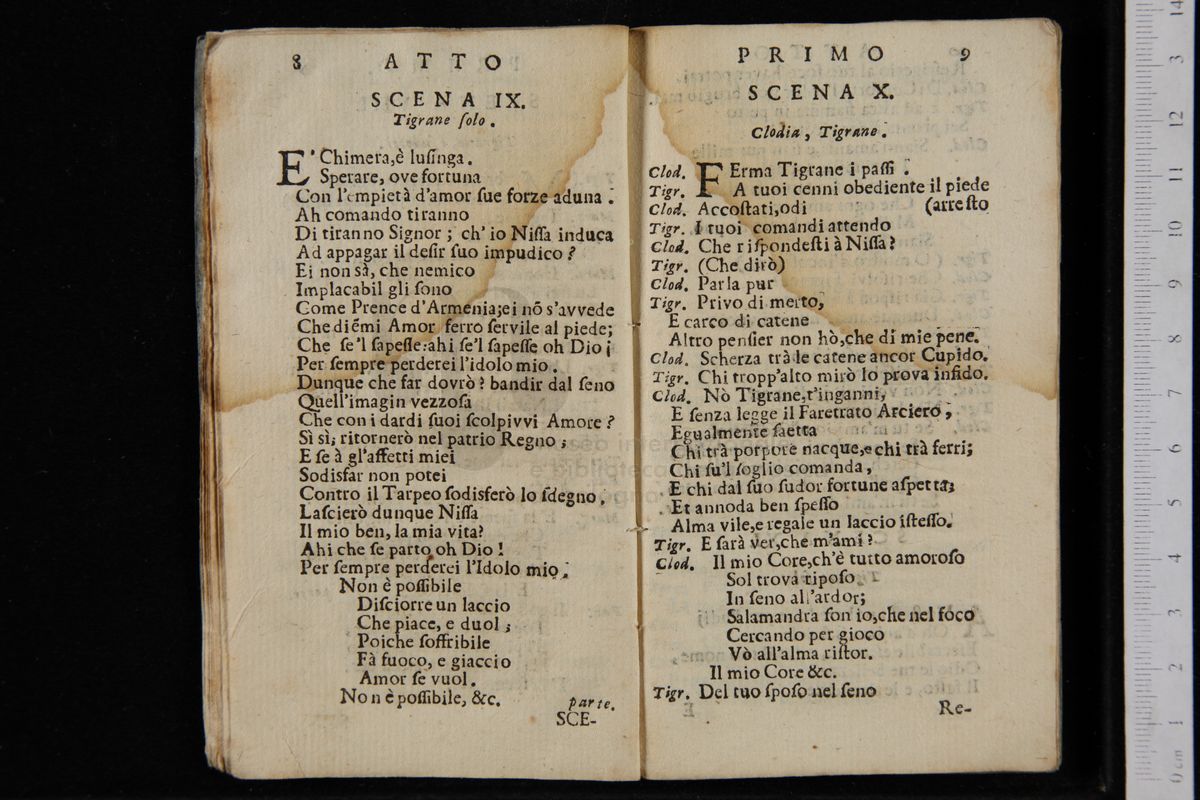 8 ATTO
SCENA IX.
Tigrane ſolo.
E' Chimera,è luſinga.
Sperare, ove fortuna
Con l'empietà d'amor ſue forze aduna.
Ah comando tiranno
Di tiranno Signor; ch' io Niſſa induca
Ad appagar il deſir ſuo impudico?
Ei non sà, che nemico
Implacabil gli ſono
Come Prence d'Armenia;ei nõ s'avvede
Che diémi Amor ferro ſervile al piede;
Che ſe'l ſapeſſe:ahi ſe'l ſapeſſe oh Dio¡
Per ſempre perderei l'idolo mio.
Dunque che far dovrò? bandir dal ſeno
Quell'imagin vezzoſa
Che con i dardi ſuoi ſcolpivvi Amore?
Sì sì; ritornerò nel patrio Regno;
E ſe à gl'affetti miei
Sodisfar non potei
Contro il Tarpeo ſodisferò lo ſdegno.
Laſcierò dunque Niſſa
Il mio ben, la mia vita?
Ahi che ſe parto oh Dio!
Per ſempre perderei l'Idolo mio.
Non è poſſibile
Diſciorre un laccio
Che piace, e duol;
Poiche ſoffribile
Fà fuoco, e giaccio
Amor ſe vuol.
Non è poſſibile, &c. parte.
SCE-
PRIMO 9
SCENA X.
Clodia, Tigrane.
Clod. FErma Tigrane i paſſi.
Tigr. A tuoi cenni obediente il piede
Clod. Accoſtati,odi (arreſto
Tigr. I tuoi comandi attendo
Clod. Che riſpondeſti à Niſſa?
Tigr. (Che dirò)
Clod. Parla pur
Tigr. Privo di merto,
E carco di catene
Altro penſier non hò,che di mie pene.
Clod. Scherza trà le catene ancor Cupido.
Tigr. Chi tropp'alto mirò lo prova infido.
Clod. Nò Tigrane,t'inganni,
E ſenza legge il Faretrato Arciero,
Egualmente ſaetta
Chi trà porpore nacque,e chi trà ferri;
Chi ſu'l ſoglio comanda,
E chi dal ſuo ſudor fortune aſpetta;
Et annoda ben ſpeſſo
Alma vile,e regale un laccio iſteſſo.
Tigr. E ſarà ver,che m'ami?
Clod. Il mio Core,ch'è tutto amoroſo
Sol trova ripoſo
In ſeno all'ardor;
Salamandra ſon io,che nel foco
Cercando per gioco
Vò all'alma riſtor.
Il mio Core &c.
Tigr. Del tuo ſpoſo nel ſeno
Re-